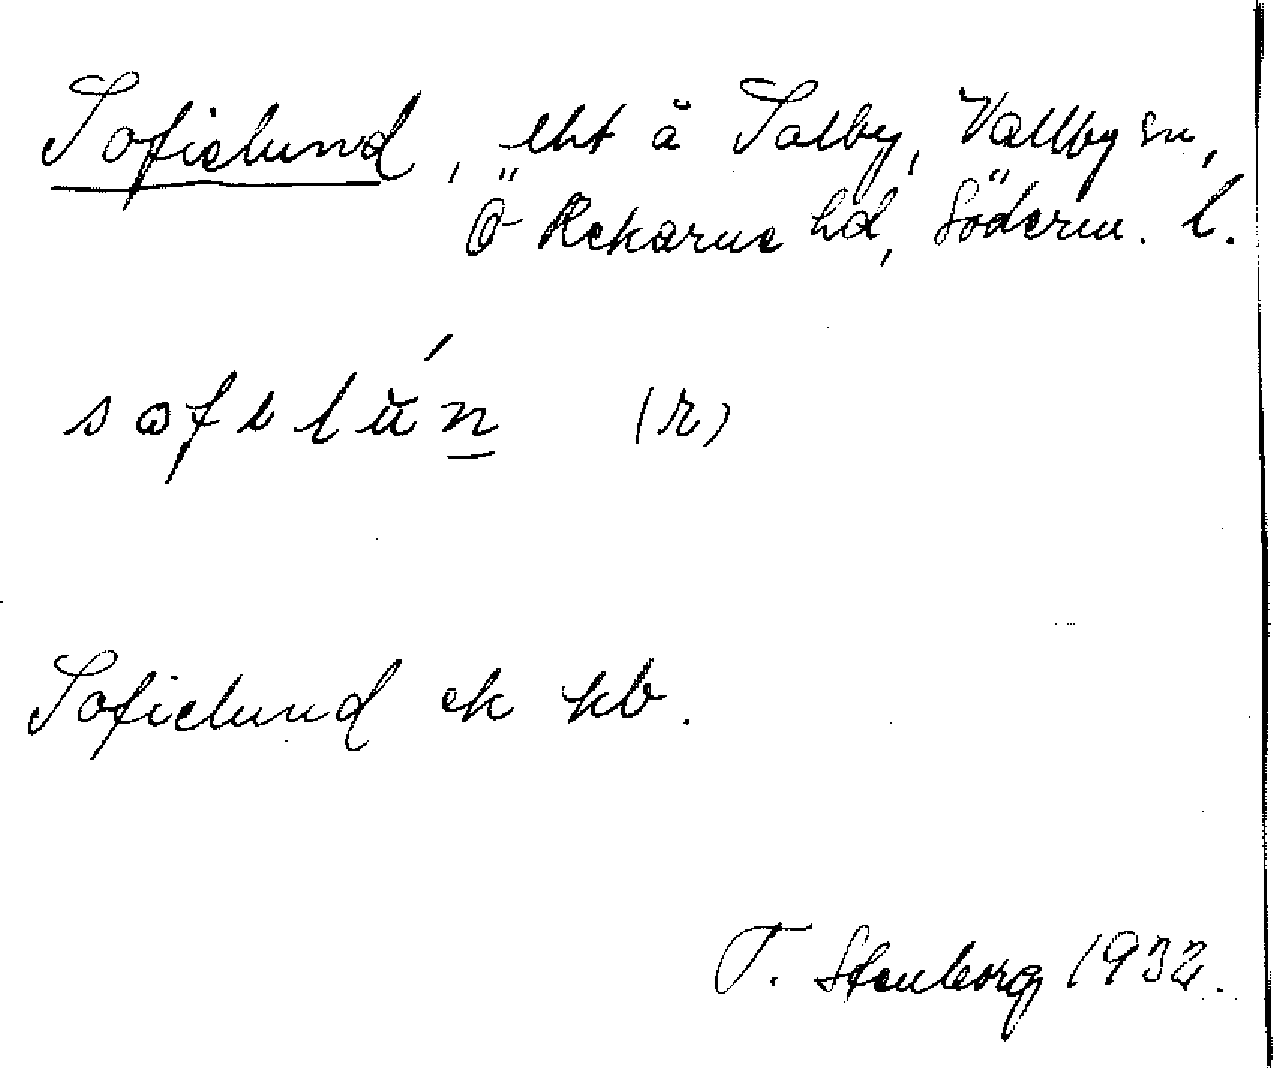 Sofielund, lht å Salby, Vallby sn,
Ö Rekarne hd, Söderm. l.
sofilŭ́n (r)
Sofielund ek kb.
T. Stenborg 1932.